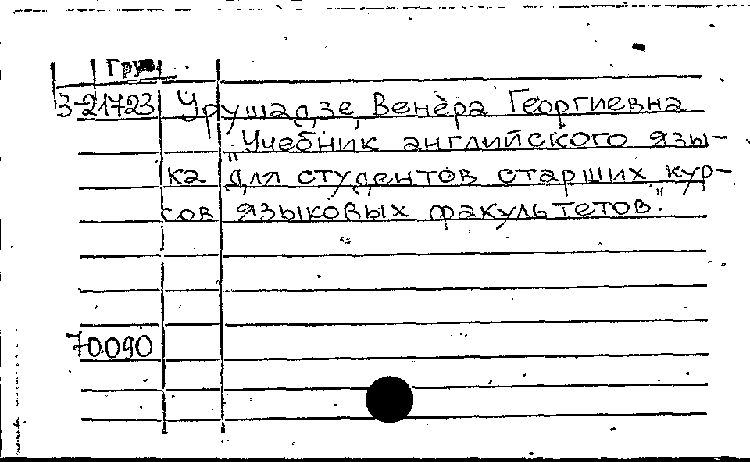 Груз
3-21723 Урушадзе, Венера Георгиевна
„Учебник английского язы-
ка для студентов старших кур-
сов языковых факультетов."
70090